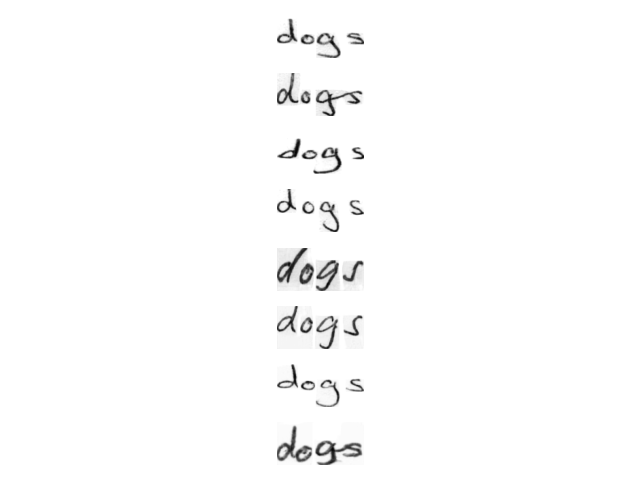 dogs
dogs
dogs
dogs
dogs
dogs
dogs
dogs